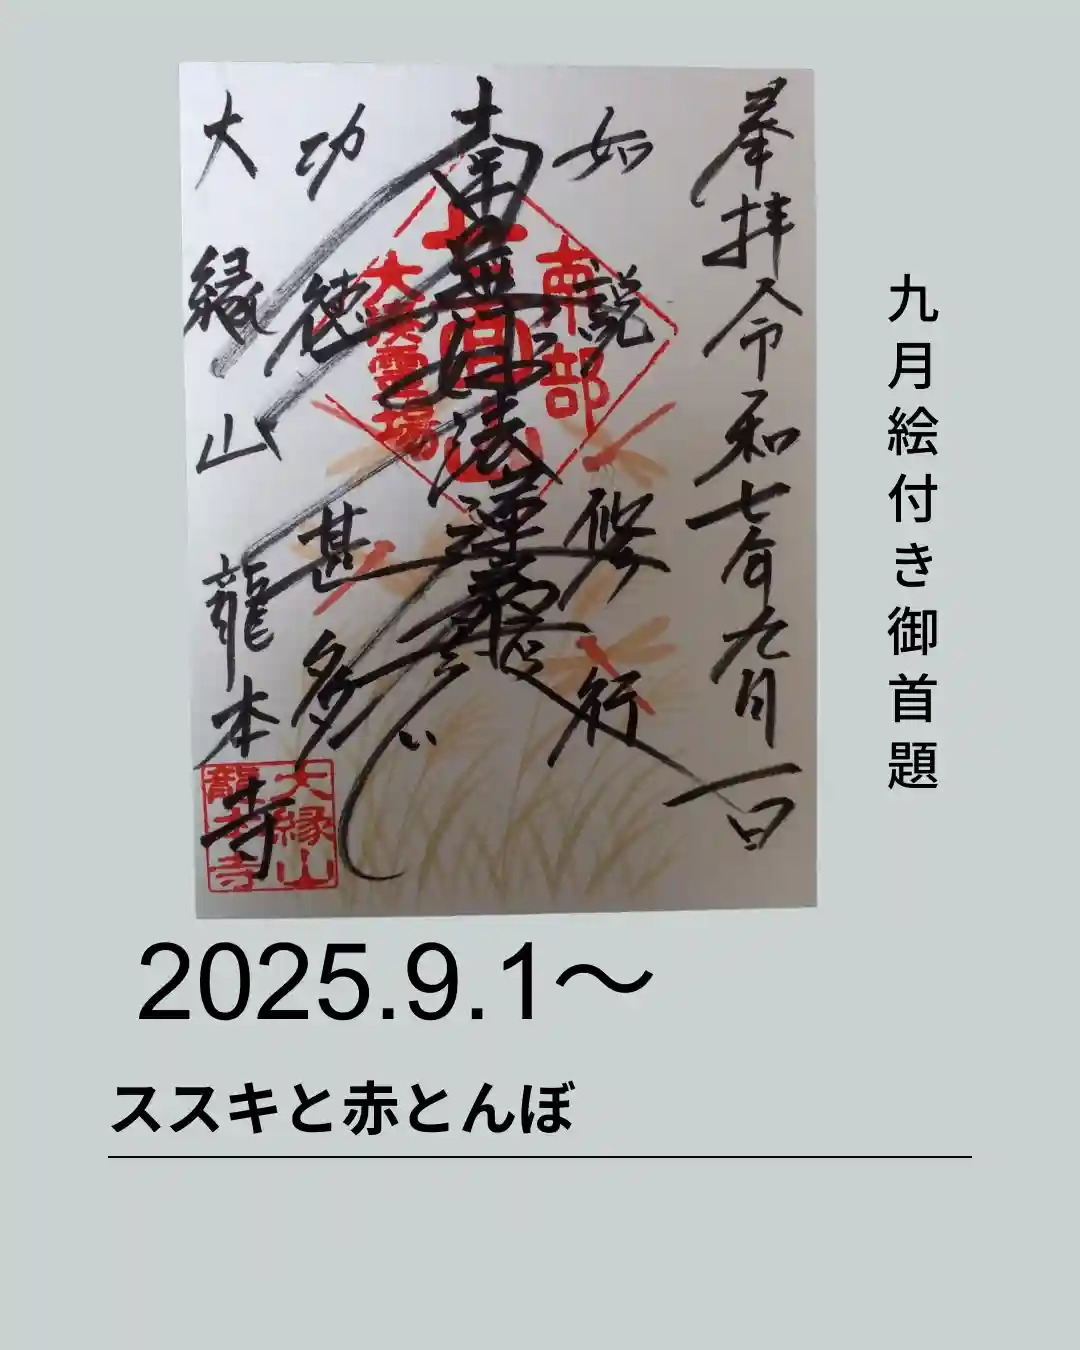 奉拝令和七年九月一日
如説修行
南無妙法蓮華経
功徳甚多
大縁山龍本寺
南部
大漢霊場
大縁山
龍本寺
九月絵付き御首題
2025.9.1〜
ススキと赤とんぼ